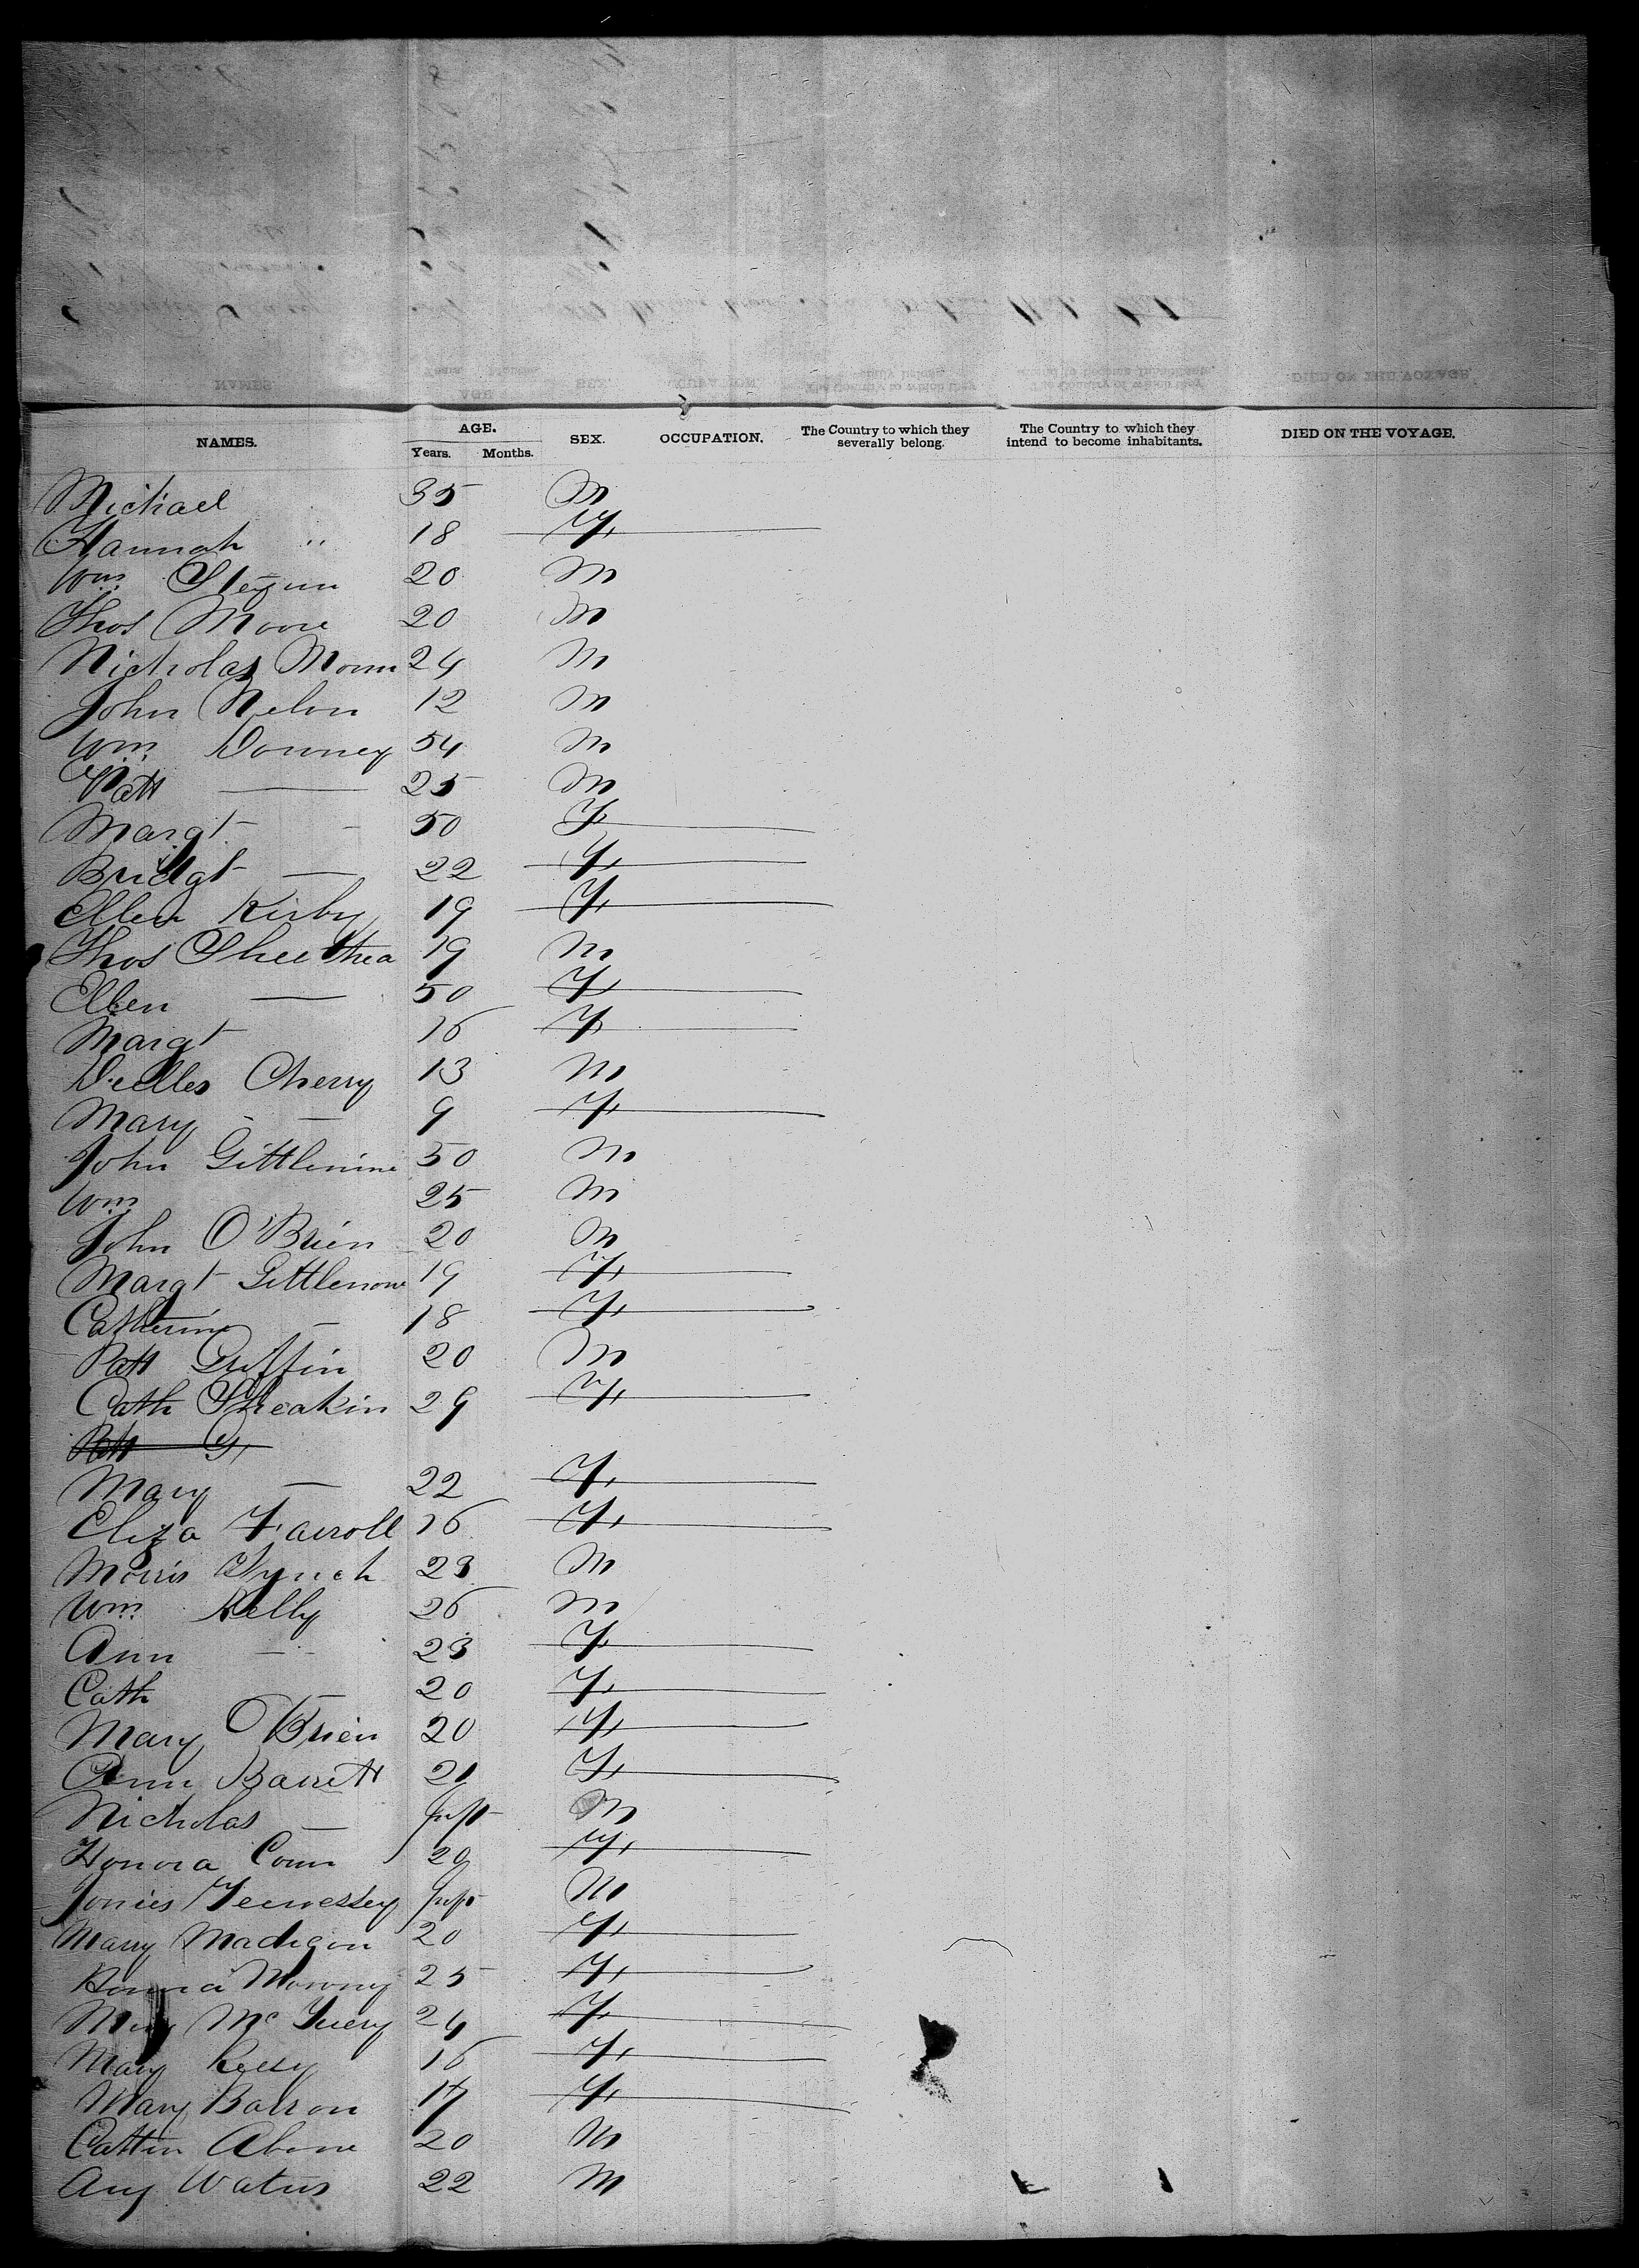 NAMES. AGE. SEX. OCCUPATION. The Country to which they severally belong. The Country to which they intend to become inhabitants. DIED ON THE VOYAGE.
Years. Months.
Michael 35 M
Hannah " 18 F
Wm 20 M
Thos Moore 20 M
Nicholas 24 M
John Nelon 12 M
Wm Downey 54 M
Patt — 25 M
Margt - 50 F
Bridgt — 22 F
Ellen Kirby 19 F
Thos 19 M
Ellen — 50 F
Margt 16 F
Cherry 13 M
Mary - — 9 F
John 50 M
Wm 25 M
John O'Brien 20 M
Margt 19 F
Catherine — 18 F
Patt Griffin 20 M
Cath Sheakin 29 F
Patt G
Mary — 22 F
Eliza Farroll 16 F
Morris Lynch 23 M
Wm Kelly 26 M
Ann — 23 F
Cath — 20 F
Mary O'Brien 20 F
Ann Barrett 21 F
Nicholas — Inft M
Honora Conn 20 F
Inft M
Mary Madigan 20 F
25 F
Mc 24 F
Mary 16 F
Mary Barron 17 F
20 M
22 M